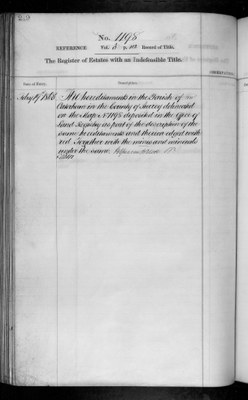 No. 1195
REFERENCE Vol. 5 p. Record of Title.
The Register of Estates with an Indefeasible Title.
Date of Entry. Description.
All hereditaments in the Parish of
Caterham in the County of Surrey delineated
on the Map No. 1195 deposited in the Office of
Land Registry as part of the description of the
same hereditaments and therein edged with
red. Together with the mines and minerals
under the same.